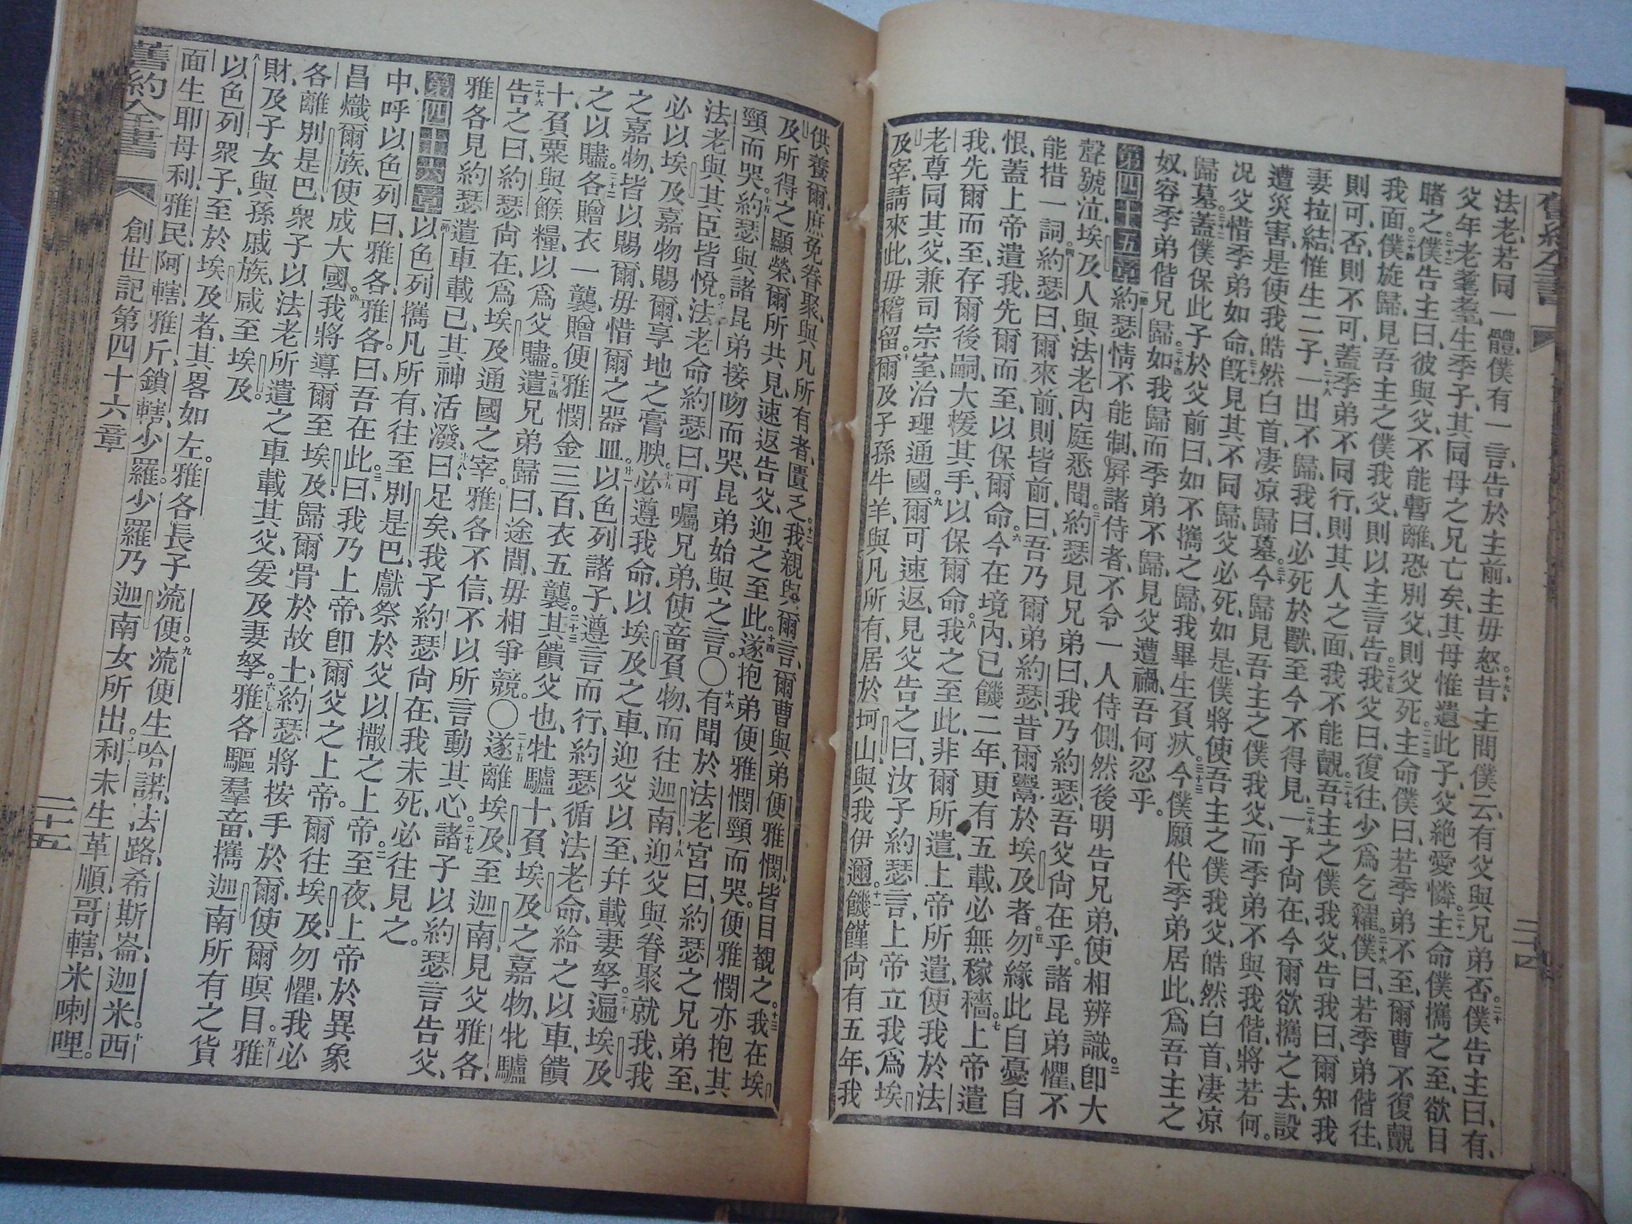 舊約全書
二十四
法老、若同一體、僕有一言、告於主前、主毋怒。十九昔主問僕云、有父與兄弟否。二十僕告主曰、有、
父年老耄耋、生季子、其同母之兄亡矣、其母惟遺此子、父絶愛憐。二十一主命僕攜之至、欲目
睹之。二十二僕告主曰、彼與父、不能暫離、恐別父、則父死。二十三主命僕曰、若季弟不至、爾曹不復覿
我面。二十四僕旋歸、見吾主之僕我父、則以主言告。二十五我父曰、復往、少爲乞糴。二十六僕曰、若季弟偕往、
則可、否、則不可、蓋季弟不同行、則其人之面、我不能覿。二十七吾主之僕我父告我曰、爾知我
妻拉結、惟生二子、二十八一出不歸、我曰、必死於獸、至今不得見、二十九一子尙在、今爾欲攜之去、設
遭災害、是使我皓然白首、凄凉歸墓。三十今歸見吾主之僕我父、而季弟不與我偕、將若何。
三十一況父惜季弟如命、旣見其不同歸、父必死、如是、僕將使吾主之僕我父、皓然白首、凄凉
歸墓。三十二蓋僕保此子於父前曰、如不攜之歸、我畢生負疚、三十三今僕願代季弟居此、爲吾主之
奴、容季弟偕兄歸。三十四如我歸而季弟不歸、見父遭禍、吾何忍乎。
第四十五章 約瑟情不能制、屛諸侍者、不令一人侍側、然後明告兄弟、使相辨識。二卽大
聲號泣、埃及人與法老內庭悉聞。三約瑟見兄弟曰、我乃約瑟、吾父尙在乎。諸昆弟懼、不
能措一詞。四約瑟曰、爾來前、則皆前、曰、吾乃爾弟約瑟、昔爾鬻於埃及者。五勿緣此自憂自
恨、蓋上帝遣我、先爾而至、以保爾命。六今在境內、已饑二年、更有五載、必無稼穡。七上帝遣
我先爾而至、存爾後嗣、大援其手、以保爾命。八我之至此、非爾所遣、上帝所遣、使我於法
老尊同其父、兼司宗室、治理通國。九爾可速返、見父告之曰、汝子約瑟言、上帝立我爲埃
及宰、請來此毋稽留。十爾及子孫牛羊、與凡所有、居於坷山、與我伊邇。十一饑饉尙有五年、我
供養爾、庶免眷聚、與凡所有者、匱乏。十二我親與爾言、爾曹與弟便雅憫、皆目覩之。十三我在埃
及所得之顯榮、爾所共見、速返告父、迎之至此。十四遂抱弟便雅憫頸而哭、便雅憫亦抱其
頸而哭。十五約瑟與諸昆弟接吻而哭、昆弟始與之言。〇十六有聞於法老宮曰、約瑟之兄弟至、
法老與其臣皆悅。十七法老命約瑟曰、可囑兄弟、使畜負物、而往迦南、十八迎父與眷聚就我、我
必以埃及嘉物賜爾、享地之膏腴、十九必遵我命、以埃及之車、迎父以至、幷載妻孥。二十遍埃及
之嘉物、皆以賜爾、毋惜爾之器皿。二十一以色列諸子、遵言而行、約瑟循法老命、給之以車、饋
之以贐。二十二各贈衣一襲、贈便雅憫金三百、衣五襲。二十三其饋父也、牡驢十、負埃及之嘉物、牝驢
十、負粟與餱糧、以爲父贐。二十四遣兄弟歸曰、途間毋相爭競。〇二十五遂離埃及、至迦南、見父雅各、
二十六告之曰、約瑟尙在、爲埃及通國之宰。雅各不信、不以所言動其心。二十七諸子以約瑟言告父、
雅各見約瑟遣車載己、其神活潑、二十八曰足矣、我子約瑟尙在、我未死、必往見之。
第四十六章 以色列攜凡所有、往至別是巴、獻祭於父以撒之上帝。二至夜、上帝於異象
中、呼以色列曰、雅各雅各、曰吾在此。三曰、我乃上帝、卽爾父之上帝。爾往埃及勿懼、我必
昌熾爾族、使成大國。四我將導爾至埃及、歸爾骨於故土、約瑟將按手於爾、使爾瞑目。五雅
各離別是巴、衆子以法老所遣之車、載其父、爰及妻孥。六雅各驅羣畜、攜迦南所有之貨
財、及子女與孫、戚族、咸至埃及。
八以色列衆子、至於埃及者、其畧如左。雅各長子流便。九流便生哈諾、法路、希斯崙、迦米。十西
面生耶母利、雅民、阿轄、雅斤、鎖轄、少羅、少羅乃迦南女所出。十一利未生革順、哥轄、米喇哩。
舊約全書
創世記第四十六章
二十五